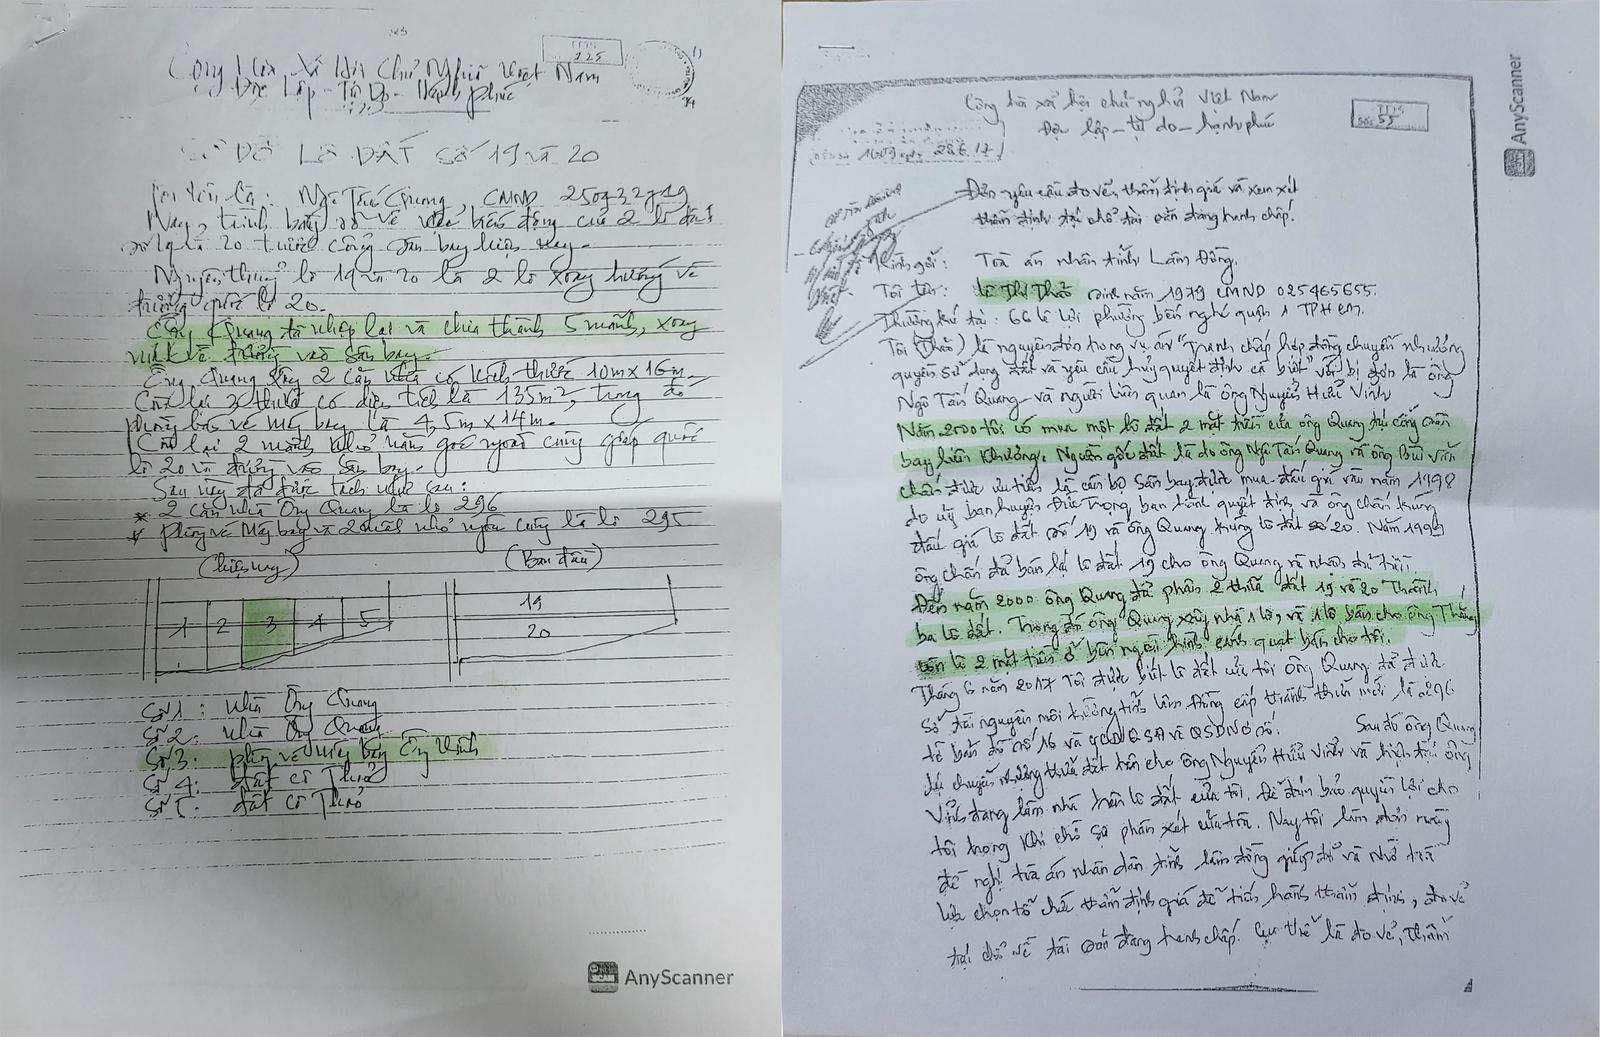 BTNS
125
Cộng Hòa Xã Hội Chủ Nghĩa Việt Nam
Độc Lập - Tự Do - Hạnh phúc
SƠ ĐỒ LÔ ĐẤT SỐ 19 và 20
Tôi tên là : Ngô Tấn Quang, CMND 250732719
Nay, trình bày sơ về việc biến động của 2 lô đất
số 19 và 20 trước cổng sân bay hiện nay.
Nguyên thuỷ lô 19 và 20 là 2 lô xoay hướng về
đường quốc lộ 20.
Ông Quang đã nhập lại và chia thành 5 mảnh, xoay
mặt về đường vào sân bay.
Ông Quang xây 2 căn nhà có kích thước 10m x 16m.
Còn lại 3 thửa có diện tích là 135m², trong đó
phòng bán vé máy bay là 4,5m x 14m.
Còn lại 2 mảnh nhỏ nằm góc ngoài cùng giáp quốc
lộ 20 và đường vào sân bay.
Sau này đã được tách như sau :
* 2 căn nhà Ông Quang là lô 296
* phòng vé Máy bay và 2 mảnh nhỏ ngoài cùng là lô 295
(hiện nay)
(Ban đầu)
1 2 3 4 5
19
20
Số 1 : nhà Ông Quang
Số 2 : nhà Ông Quang
Số 3 : phòng vé máy bay Ông Vinh
Số 4 : đất cô Thảo
Số 5 : đất cô Thảo
AnyScanner
Cộng hòa xã hội chủ nghĩa Việt Nam
Độc lập - tự do - hạnh phúc
BTNS
Số: 55
28.6.17
Đơn yêu cầu đo vẽ, thẩm định giá và xem xét
thẩm định tại chổ tài sản đang tranh chấp.
Kính gởi : Toà án nhân dân tỉnh Lâm Đồng.
Tôi tên : Lê Thị Thảo sinh năm 1979 CMND 025465655.
Thường trú tại : 66 lê lợi phường bến nghé quận 1 TPHCM.
Tôi (Thảo) là nguyên đơn trong vụ án "Tranh chấp hợp đồng chuyển nhượng
quyền sử dụng đất và yêu cầu huỷ quyết định cá biệt" với bị đơn là ông
Ngô Tấn Quang và người liên quan là ông Nguyễn Hữu Vinh
Năm 2000 tôi có mua một lô đất 2 mặt tiền của ông Quang tại cổng sân
bay liên khương. Nguồn gốc đất là do ông Ngô Tấn Quang và ông Bùi Văn
Chấn được ưu tiên là cán bộ sân bay được mua đấu giá vào năm 1998
do uỷ ban huyện Đức Trọng ban hành quyết định và ông chấn trúng
đấu giá lô đất số 19 và ông Quang trúng lô đất số 20. Năm 1999
ông chấn đã bán lại lô đất 19 cho ông Quang
Đến năm 2000 ông Quang đã phân 2 thửa đất 19 và 20 Thành
ba lô đất. Trong đó ông Quang xây nhà 1 lô, và 1 lô bán cho ông Thắng
còn lô 2 mặt tiền ở bên ngoài hình cánh quạt bán cho tôi.
Tháng 6 năm 2017 Tôi được biết lô đất của tôi ông Quang đã được
Sở tài nguyên môi trường tỉnh Lâm Đồng cấp thành thửa mới là 296
tờ bản đồ số 16 và GCNQSH và QSDNO số. Sau đó ông Quang
lại chuyển nhượng thửa đất trên cho ông Nguyễn Hữu Vinh và hiện tại ông
Vinh đang làm nhà trên lô đất của tôi. Để đảm bảo quyền lợi cho
tôi trong khi chờ sự phán xét của toà. Nay tôi làm đơn này
đề nghị toà án nhân dân tỉnh lâm đồng giúp đỡ và hỗ trợ
lựa chọn tổ chức thẩm định giá để tiến hành thẩm định, đo vẽ
tại chổ về tài sản đang tranh chấp. Cụ thể là đo vẽ, thẩm
AnyScanner